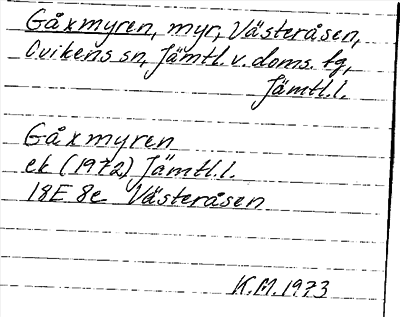 Gåxmyren, myr, Västeråsen,
Ovikens sn, Jämtl. v. doms. tg,
Jämtl. l.
Gåxmyren
ek (1972) Jämtl. l.
18E 8e Västeråsen
K.M. 1973